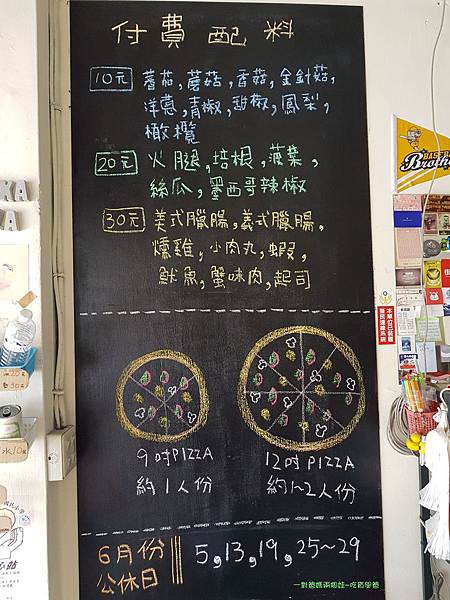 付費配料
10元 蕃茄,蘑菇,香菇,金針菇,
洋蔥,青椒,甜椒,鳳梨,
橄欖
20元 火腿,培根,菠菜,
絲瓜,墨西哥辣椒
30元 美式臘腸,義式臘腸,
燻雞,小肉丸,蝦,
魷魚,蟹味肉,起司
9吋PIZZA
約1人份
12吋PIZZA
約1~2人份
6月份
公休日
5,13,19,25~29
一對爸媽兩個娃~吃喝學遊
KA
A
Brothers